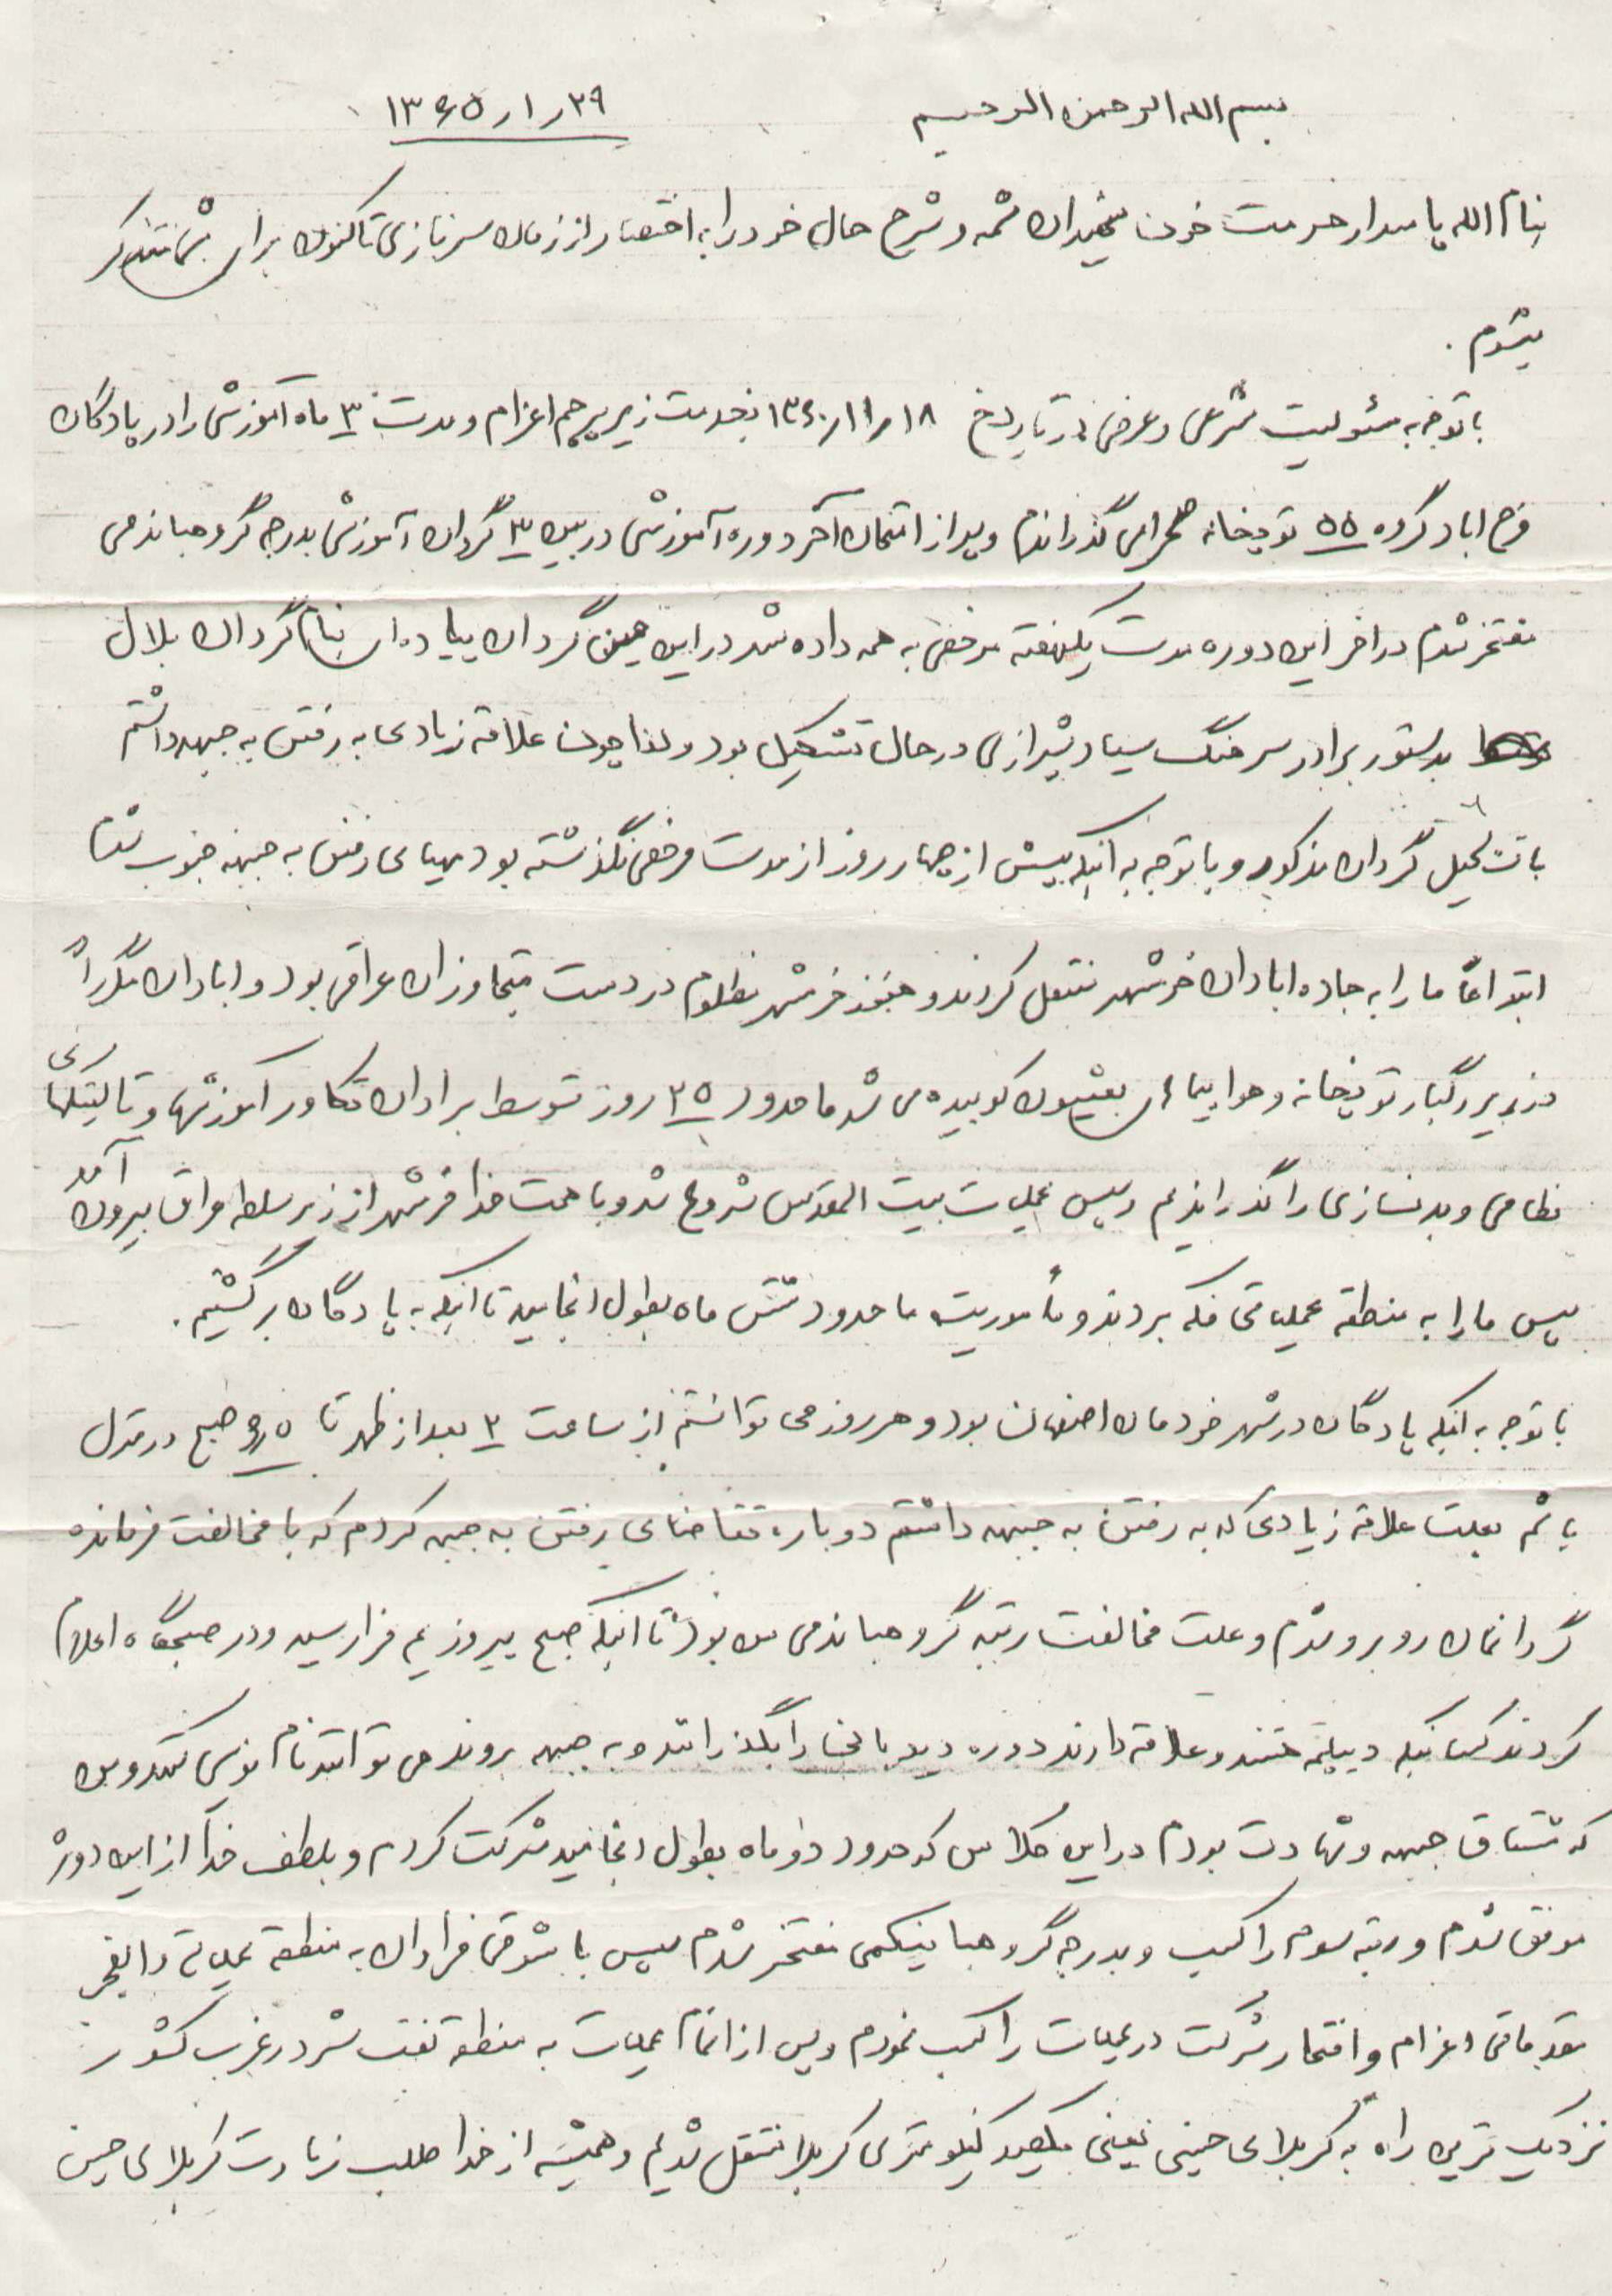 بسم الله الرحمن الرحیم
۲۹ر۱ر۱۳۶۵
بنام الله پاسدار حرمت خون شهیدان شمه و شرح حال خود را به اختصار از زمان سربازی تاکنون برای شما متذکر
میشوم .
با توجه به مسئولیت شرعی و عرفی در تاریخ ۱۸ر۱۱ر۱۳۶۰ بخدمت زیر پرچم اعزام و مدت ۳ ماه آموزشی را در پادگان
فرح اباد گروه ۵۵ توپخانه صحرایی گذراندم و بعد از امتحان آخر دوره آموزشی در بین ۳ گردان آموزشی بدرجه گروهباندمی
مفتخر شدم در اخر این دوره مدت یکهفته مرخصی به همه داده شد در این حین گردان پیاده ای بنام گردان بلال
بدستور برادر سرهنگ سیاد شیرازی در حال تشکیل بود و لذا چون علاقه زیادی به رفتن به جبهه داشتم
با تشکیل گردان مذکور و با توجه به اینکه بیش از چهار روز از مدت مرخصی نگذشته بود مهیای رفتن به جبهه جنوب شدم
ابتداءً ما را به جاده ابادان خرمشهر منتقل کردند و هنوز خرمشهر مظلوم در دست متجاوزان عراقی بود و ابادان مکرراً
در زیر رگبار توپخانه و هواپیمای بعثیون کوبیده می شد ما حدود ۲۵ روز توسط برادان تکاور آموزشها و تاکتیکهای
نظامی و بدنسازی را گذراندیم و سپس عملیات بیت المقدس شروع شد و با همت خدا خرمشهر از زیر سلطه عراق بیرون آمد
سپس ما را به منطقه عملیاتی فکه بردند و مأموریت ما حدود شش ماه بطول انجامید تا اینکه به پادگان برگشتیم .
با توجه به اینکه پادگان در شهر خودمان اصفهان بود و هر روز می توانستم از ساعت ۲ بعد از ظهر تا ۶٫۵ صبح در منزل
باشم بعلت علاقه زیادی که به رفتن به جبهه داشتم دوباره تقاضای رفتن به جبهه کردم که با مخالفت فرمانده
گردانمان روبرو شدم و علت مخالفت رتبه گروهباندمی من بود تا اینکه صبح پیروزیم فرا رسید و در صبحگاه اعلام
کردند کسانیکه دیپلمه هستند و علاقه دارند دوره دیدبانی را بگذرانند و به جبهه بروند می توانند نام نویسی کنند و من
که مشتاق جبهه و شهادت بودم در این کلاس که حدود دو ماه بطول انجامید شرکت کردم و بلطف خدا از این دوره
موفق شدم و رتبه سوم را کسب و بدرجه گروهبانیکمی مفتخر شدم سپس با شوقی فراوان به منطقه عملیاتی والفجر
مقدماتی اعزام و افتخار شرکت در عملیات را کسب نمودم و پس از اتمام عملیات به منطقه نفت شهر در غرب کشور
نزدیک ترین راه به کربلای حسینی یعنی یکصد کیلومتری کربلا منتقل شدیم و همیشه از خدا طلب زیارت کربلای حسین